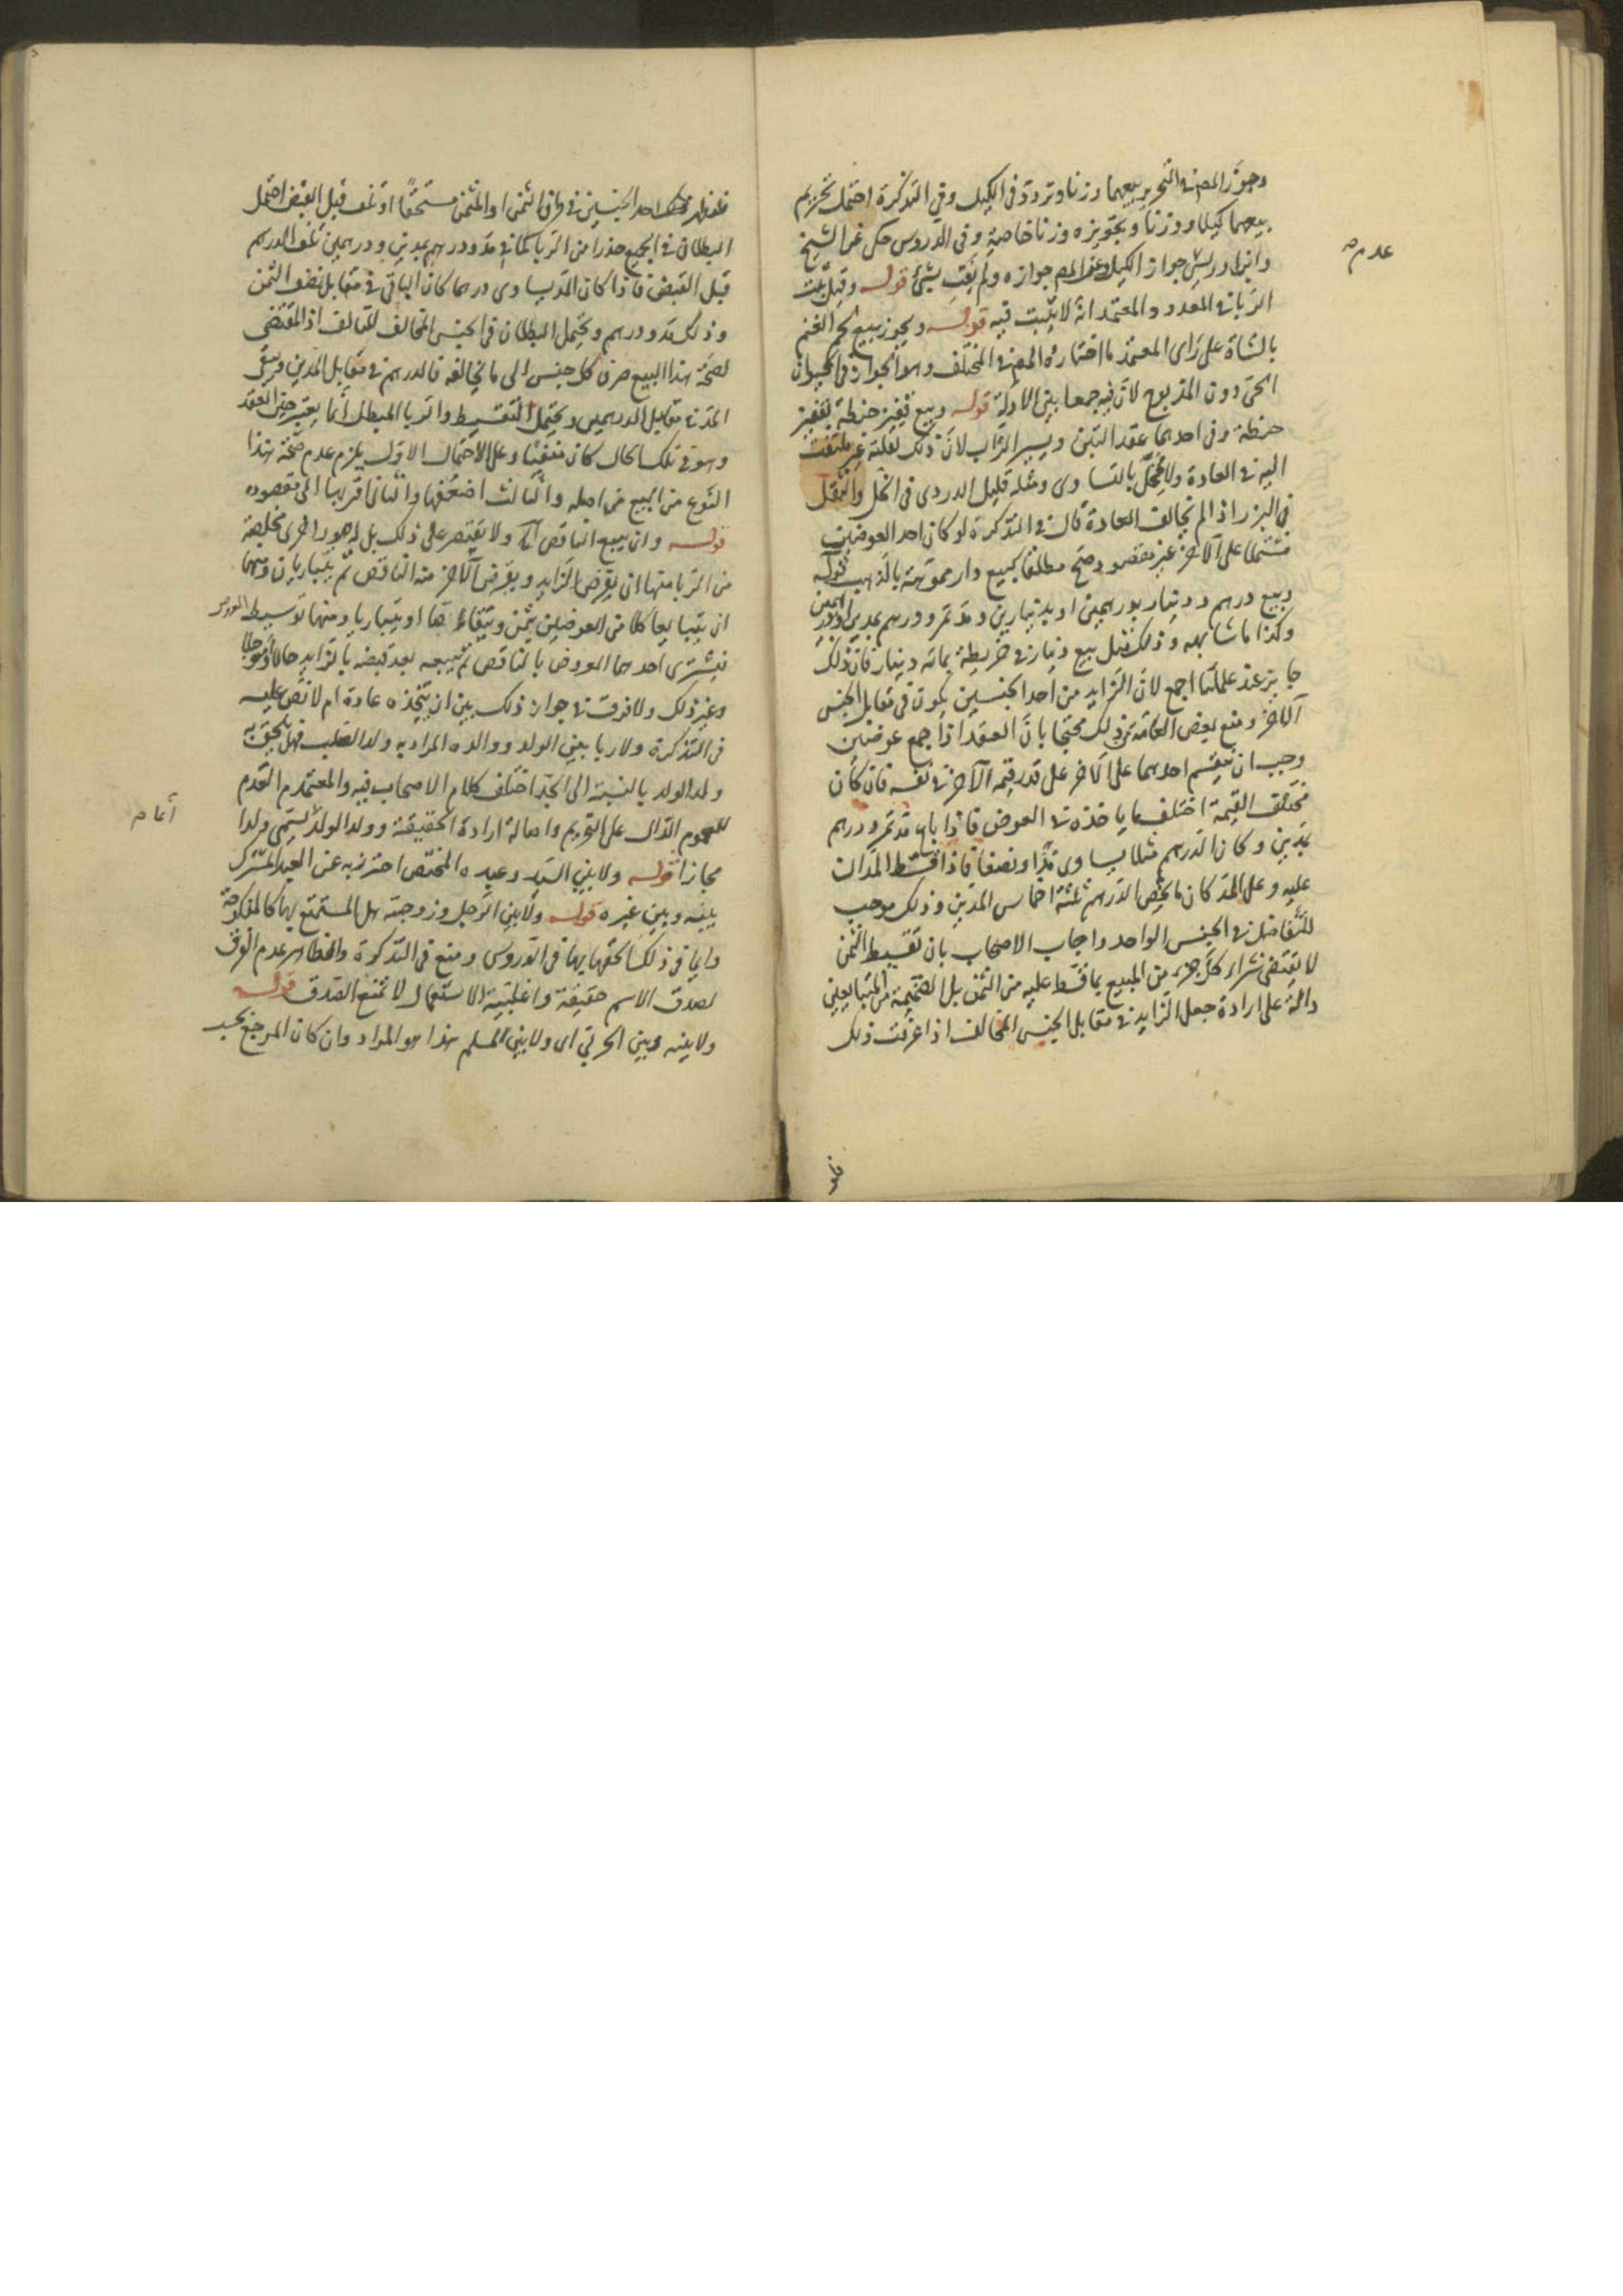 وجوز المص في التحرير بيعهما وزنا وتردد في الكيل وفي التذكرة احتمل تحريم
بيعهما كيلا ووزنا وتجويزه وزنا خاصة وفي الدروس حكى عن الشيخ
وابن ادريس جواز الكيل وعن المص جوازه ولم يفت بشئ قوله وقيل يثبت
الربا في المعدود والمعتمد انه لا يثبت فيه قوله ويجوز بيع لحم الغنم
بالشاة على راى المعتمد ما اختاره المص في المختلف وهو الجواز في الحيوان
الحى دون المذبوح لان فيه جمعا بين الادلة قوله وبيع قفيز حنطة بقفيز
حنطة وفى احدهما عقد التبن ويسير التراب لان ذلك لقلته غير ملتفت
اليه في العادة ولا مخل بالتساوى ومثله قليل الدردى في الخل والثفل
في البزر اذا لم يخالف العادة قال في التذكرة لو كان احد العوضين
مشتملا على الآخر غير مقصود صح مطلقا كبيع دار مموهة بالذهب قوله
وبيع درهم ودينار بدرهمين او بدينارين ومد تمر ودرهم بمدين او درهمين
وكذا ما شابهه وذلك مثل بيع دينار في خريطة بمائة دينار فان ذلك
جايز عند علمائنا اجمع لان الزايد من احد الجنسين يكون في مقابل الجنس
الآخر ومنع بعض العامة من ذلك محتجا بان العقد اذا جمع عوضين
وجب ان ينقسم احدهما على الآخر على قدر قيمة الآخر في نفسه فان كان
مختلف القيمة اختلف ما ياخذه في العوض فاذا باع مد تمر ودرهم
بمدين وكان الدرهم مثلا يساوى مدا ونصفا فاذا قسط المدان
عليه وعلى المد كان ما يخص الدرهم ثلثة اخماس المدين وذلك موجب
للتفاضل في الجنس الواحد واجاب الاصحاب بان تقسيط الثمن
لا يقتضى شراء كل جزء من المبيع بما قسط عليه من الثمن بل الضميمة من المتبايعين
دالة على ارادة جعل الزايد في مقابل الجنس المخالف اذا عرفت ذلك
عدم صح
فلو
فلو ظهر احد الجنسين في طرف الثمن او المثمن مستحقا او تلف قبل القبض احتمل
البطلان في الجميع حذرا من الربا كما في مد ودرهم بمدين ودرهمين تلف الدرهم
قبل القبض فاذا كان المد يساوى درهما كان الباقى في مقابل نصف الثمن
وذلك مد ودرهم ويحتمل البطلان في الجنس المخالف للتالف اذ المقتضى
لصحة هذا البيع صرف كل جنس الى ما يخالفه فالدرهم في مقابل المدين وبقى
المد في مقابل الدرهمين ويحتمل التقسيط والربا المبطل انما يعتبر حين العقد
وهو في تلك الحال كان منتفيا وعلى الاحتمال الاول يلزم عدم صحة هذا
النوع من البيع من اصله والثالث اضعفها والثانى اقربها الى مقصوده
قوله وان يبيع الناقص الخ ولا يقتصر على ذلك بل له صور اخرى مخلصة
من الربا منها ان يقرض الزايد ويقرض الآخر منه الناقص ثم يتباريان ومنها
ان يتبايعا كلا من العوضين بثمن ويتقاصا او يتباريا ومنها توسيط العروض
فيشترى احدهما العروض بالناقص ثم يبيعه بعد قبضه بالزايد حالا او مؤجلا
وغير ذلك ولا فرق في جواز ذلك بين ان يتخذه عادة ام لا نص عليه
في التذكرة ولا ربا بين الولد ووالده المراد به ولد الصلب فهل يلحق به
ولد الولد بالنسبة الى الجد اختلف كلام الاصحاب فيه والمعتمد العدم
للعموم الدال على التحريم واصالة ارادة الحقيقة وولد الولد يسمى ولدا
مجازا قوله ولا بين السيد وعبده المختص احترز به عن العبد المشترك
بينه وبين غيره قوله ولا بين الرجل وزوجته هل المستمتع بها كالمنكوحة
دايما في ذلك الحقها بها في الدروس ومنع في التذكرة والظاهر عدم الفرق
لصدق الاسم حقيقة واغلبية الاستعمال لا تمنع الصدق قوله
ولا بينه وبين الحربى اى ولا بين المسلم هذا هو المراد وان كان المرجع بحسب